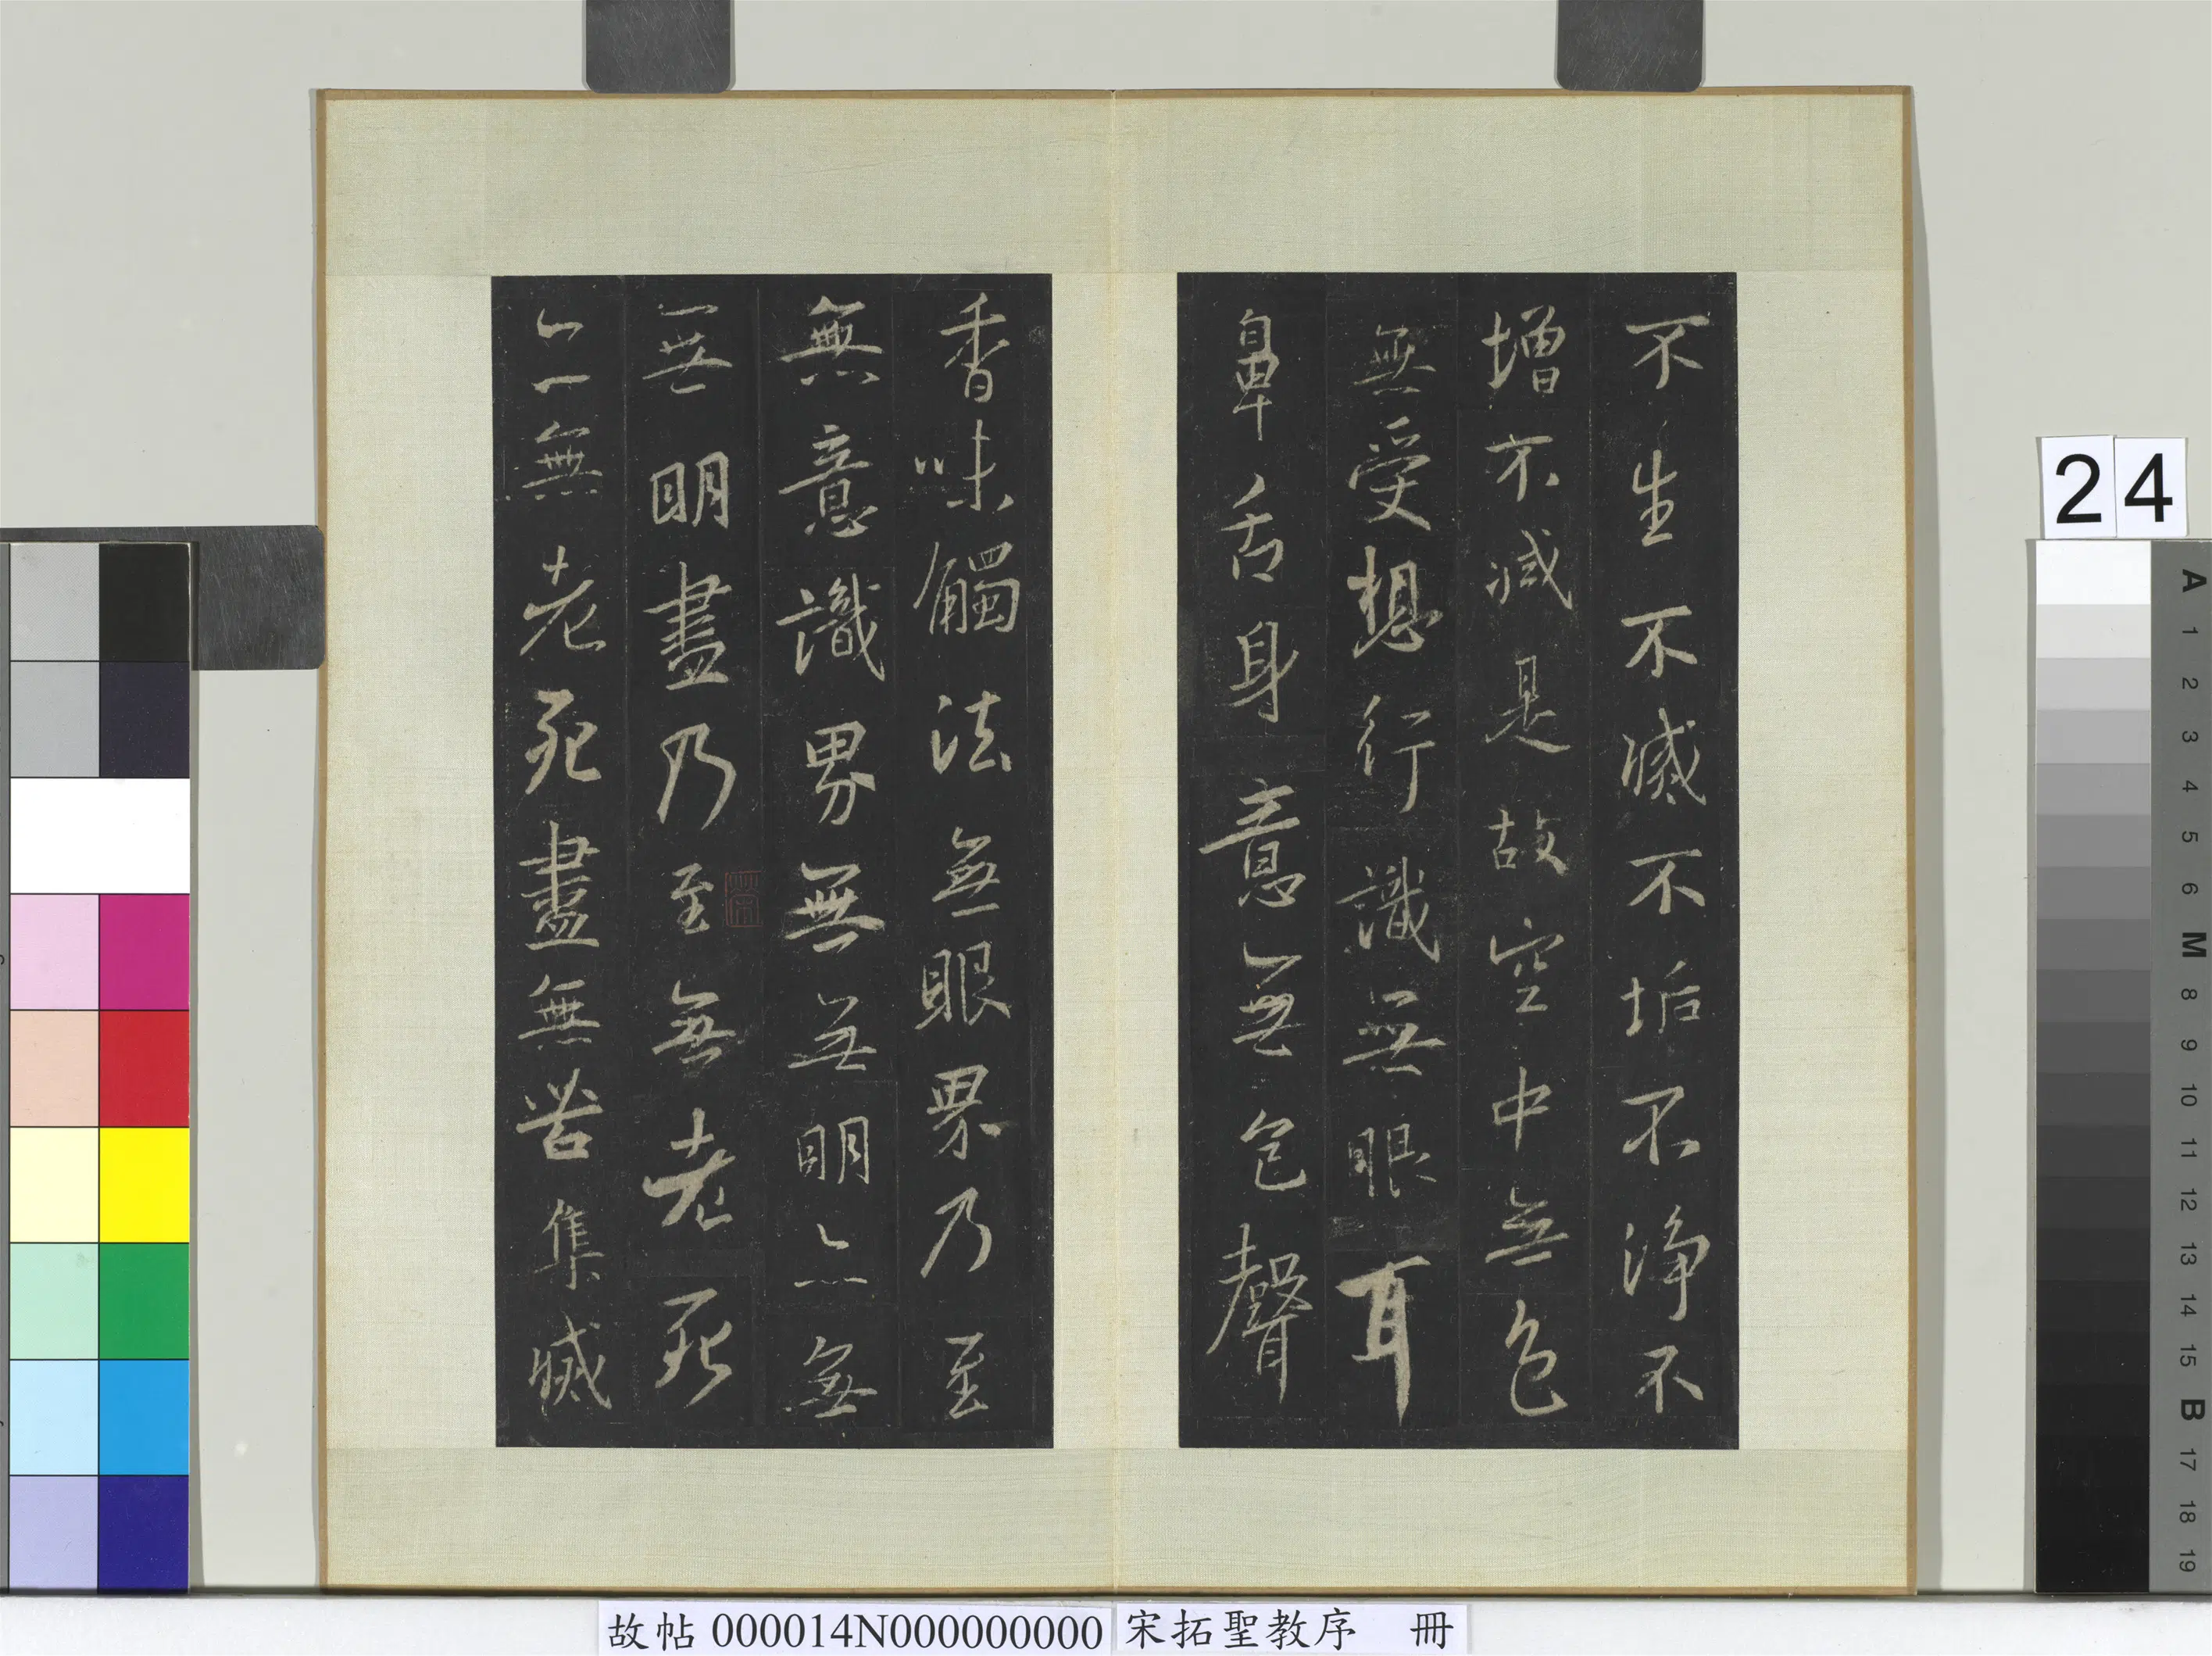 不生不滅不垢不淨不
增不減是故空中無色
無受想行識無眼耳
鼻舌身意無色聲
香味觸法無眼界乃至
無意識界無無明亦無
無明盡乃至無老死
亦無老死盡無苦集滅
24
A 1 2 3 4 5 6 M 8 9 10 11 12 13 14 15 B 17 18 19
故帖 000014N000000000 宋拓聖教序 冊